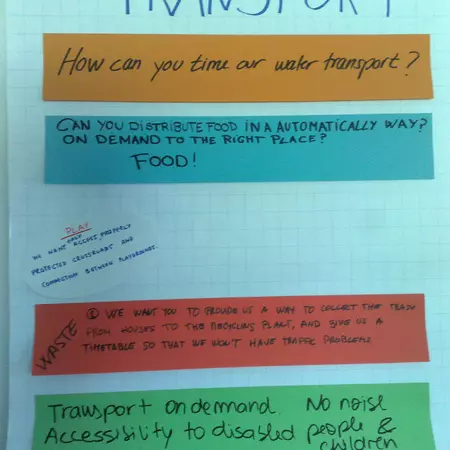 TRANSPORT
How can you time our water transport?
CAN YOU DISTRIBUTE FOOD IN A AUTOMATICALLY WAY?
ON DEMAND TO THE RIGHT PLACE?
FOOD!
PLAY
WE WANT EASY ACCESS, PROPERLY
PROTECTED CROSSROADS AND
CONNECTION BETWEEN PLAYGROUNDS.
WASTE
① WE WANT YOU TO PROVIDE US A WAY TO COLLECT THE TRASH
FROM HOUSES TO THE RECYCLING PLANT, AND GIVE US A
TIMETABLE SO THAT WE WON'T HAVE TRAFFIC PROBLEMS
Transport on demand. No noise
Accessibility to disabled people &
children